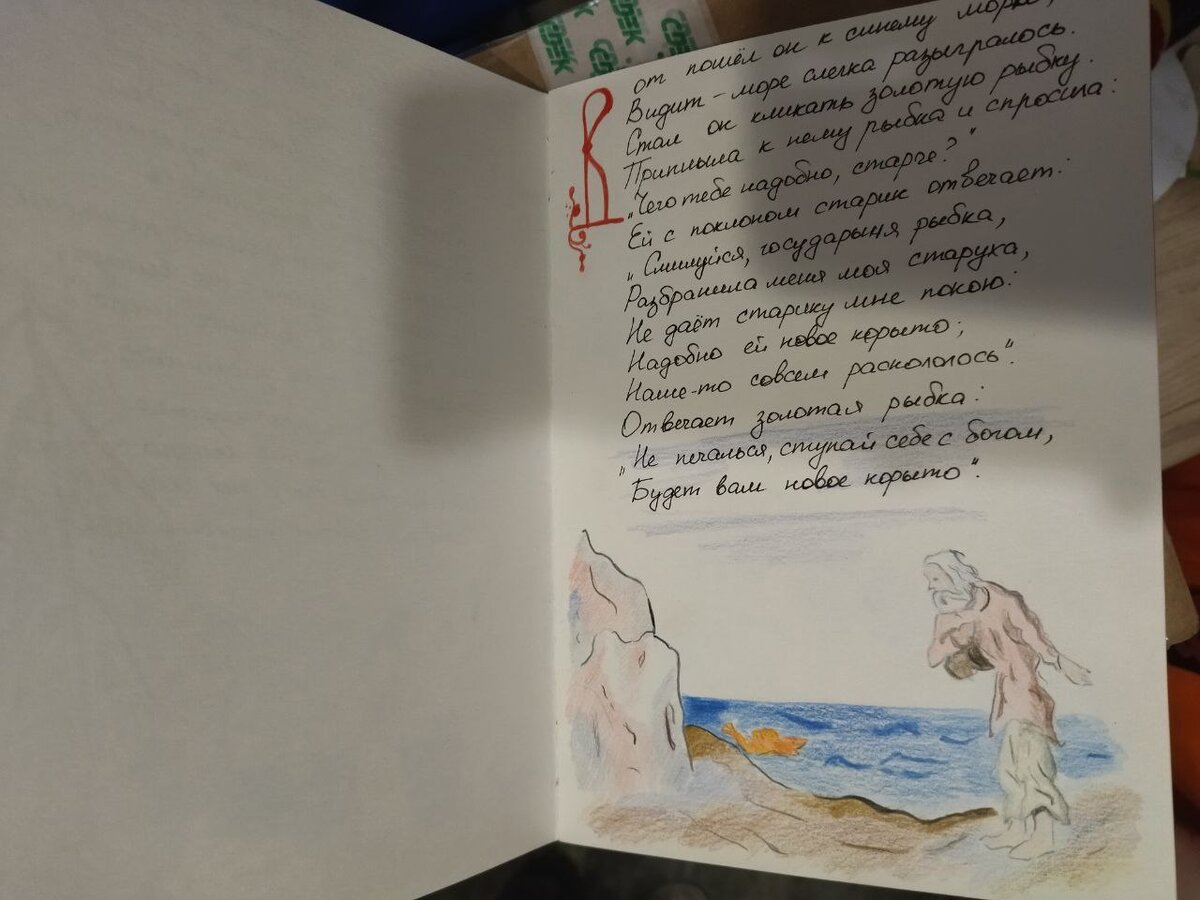 CDEK CDEK
CDEK
Вот пошёл он к синему морю,
Видит – море слегка разыгралось.
Стал он кликать золотую рыбку.
Приплыла к нему рыбка и спросила:
„Чего тебе надобно, старче?"
Ей с поклоном старик отвечает:
„Смилуйся, государыня рыбка,
Разбранила меня моя старуха,
Не даёт старику мне покою:
Надобно ей новое корыто;
Наше-то совсем раскололось".
Отвечает золотая рыбка:
„Не печалься, ступай себе с богом,
Будет вам новое корыто".